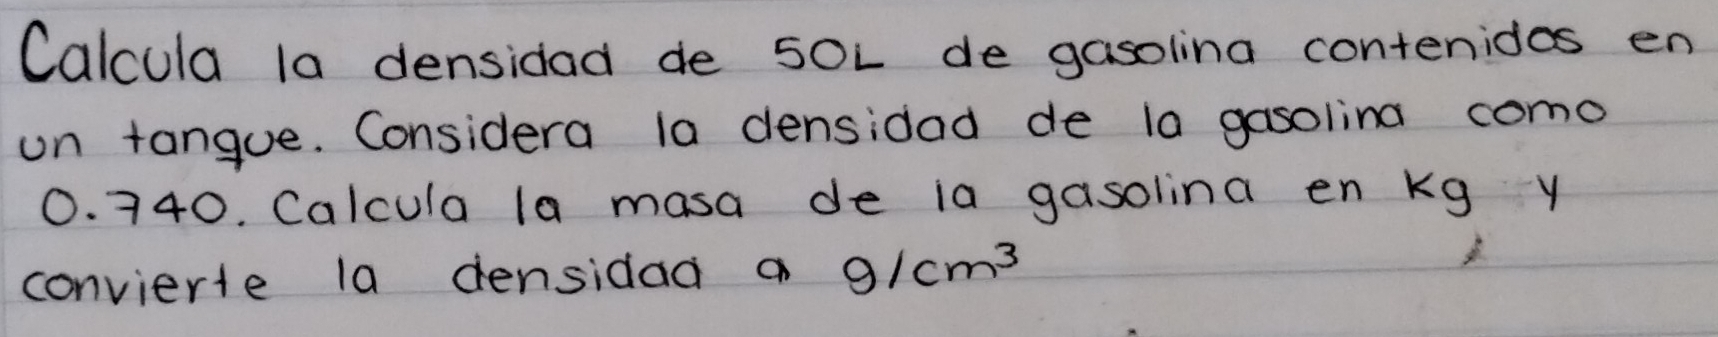 Calcula la densidad de 50L de gasolina contenidos en
un tanque. Considera la densidad de la gasolina como
0.740. Calcula la masa de la gasolina en Kg y
convierte la densidad a g/cm³